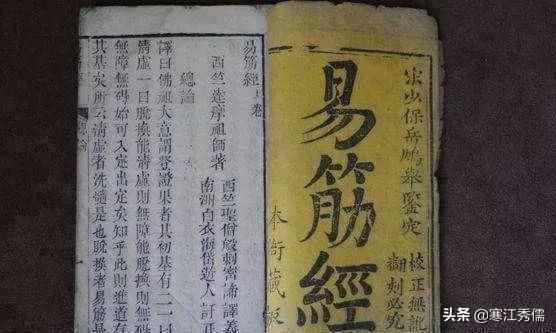 宋少保岳鵬舉鑒定
校正無訛
翻刻必究
易筋經
本衙藏板
易筋經上卷
西竺達摩祖師著
西竺聖僧般剌密諦譯義
南洲白衣海岱遊人訂正
總論
譯曰佛祖大意謂登證果者其初基有二一曰
清虛一曰脫換能清虛則無障能脫換則無礙
無障無礙始可入定出定矣知乎此則進道有
其基矣所云清虛者洗髓是也脫換者易筋是
頭条 @寒江秀儒